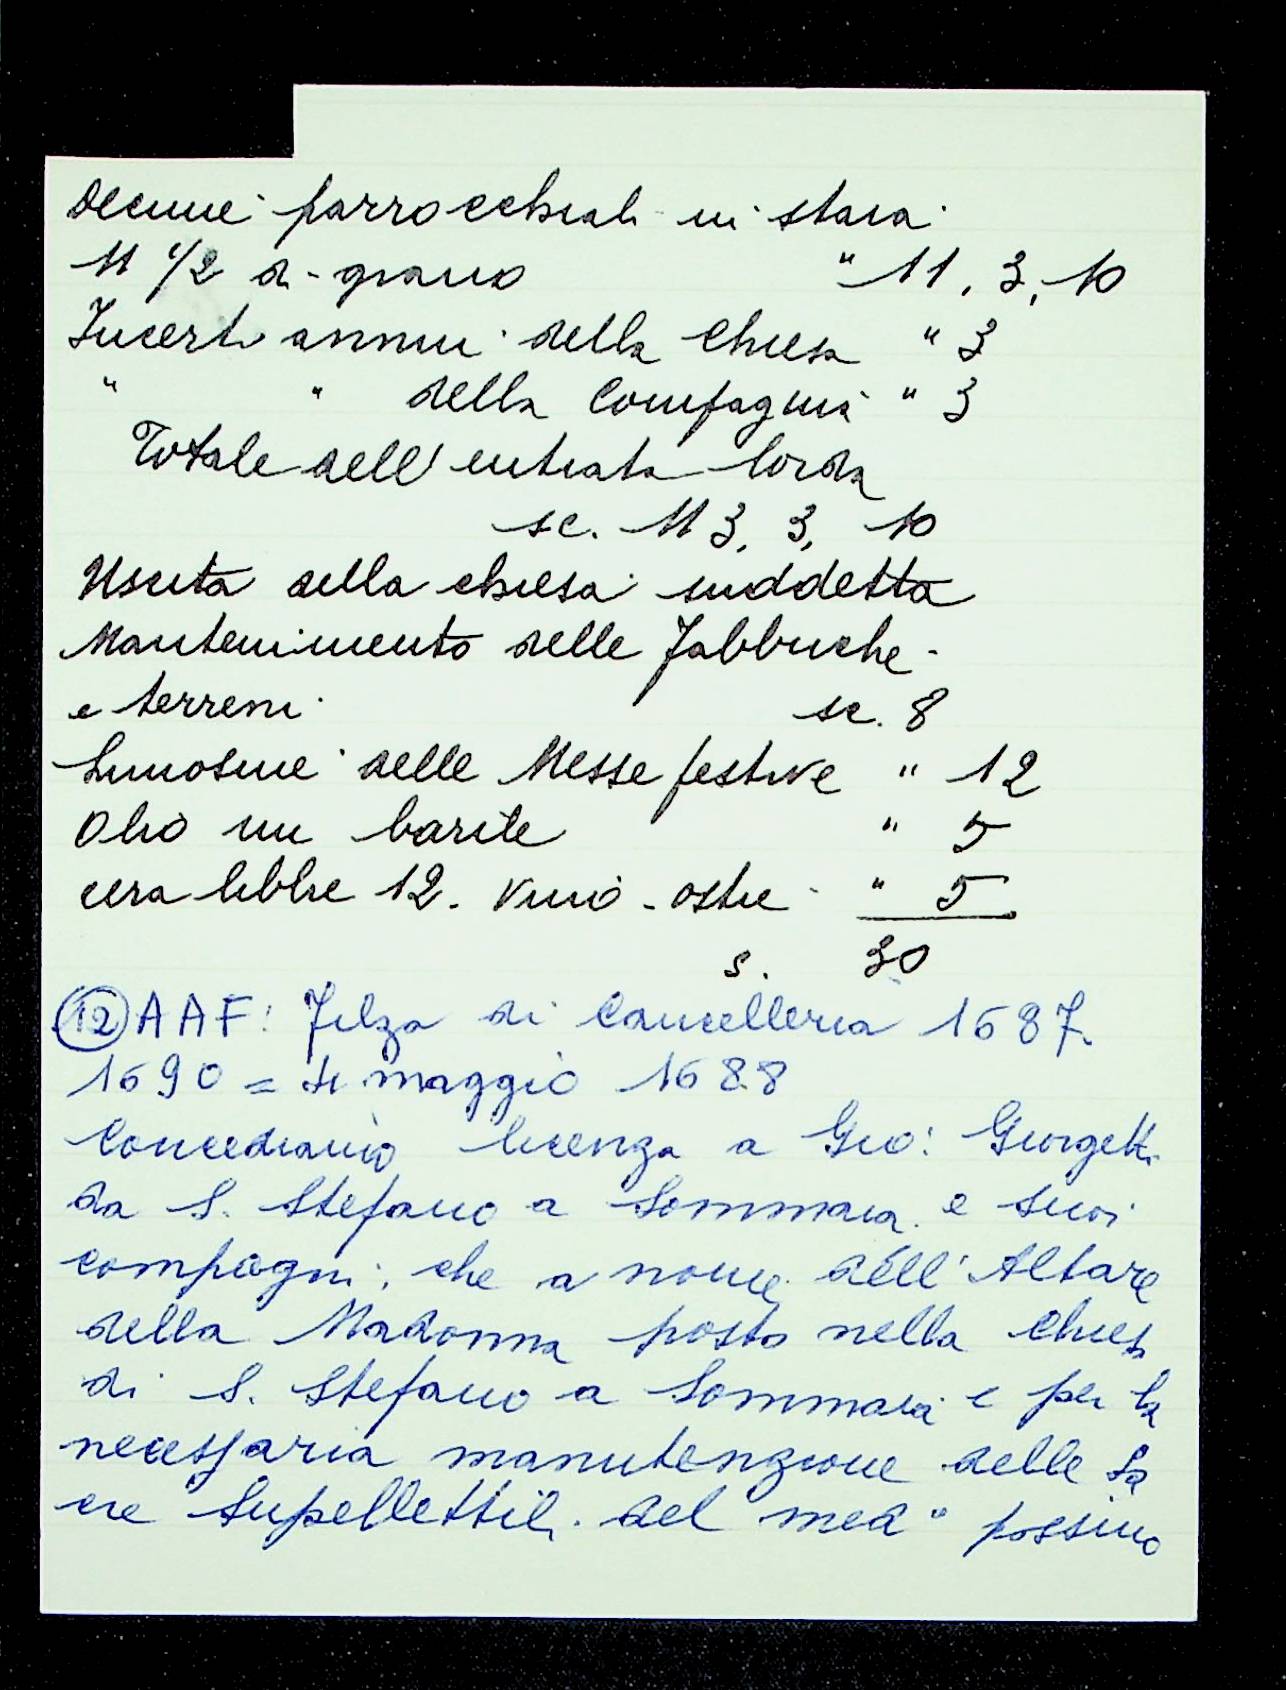 Decime parrocchiali in staia
11 1/2 di grano " 11, 3, 10
Incerti annui della Chiesa " 3
" " della Compagnia " 3
Totale dell'entrata lorda
sc. 113, 3, 10
Uscita della chiesa suddetta
Mantenimento delle Fabbriche
e terreni sc. 8
Limosine delle Messe festive " 12
Olio un barile " 5
cera libbre 12. vino - ostie " 5
s. 30
12 AAF: Filza di Cancelleria 1687-
1690 = 4 maggio 1688
Concediamo licenza a Gio: Giorgetti
da S. Stefano a Sommaia e suoi
compagni, che a nome dell'Altare
della Madonna posto nella Chiesa
di S. Stefano a Sommaia e per la
necessaria manutenzione delle Sa
cre Supellettili del med° possino